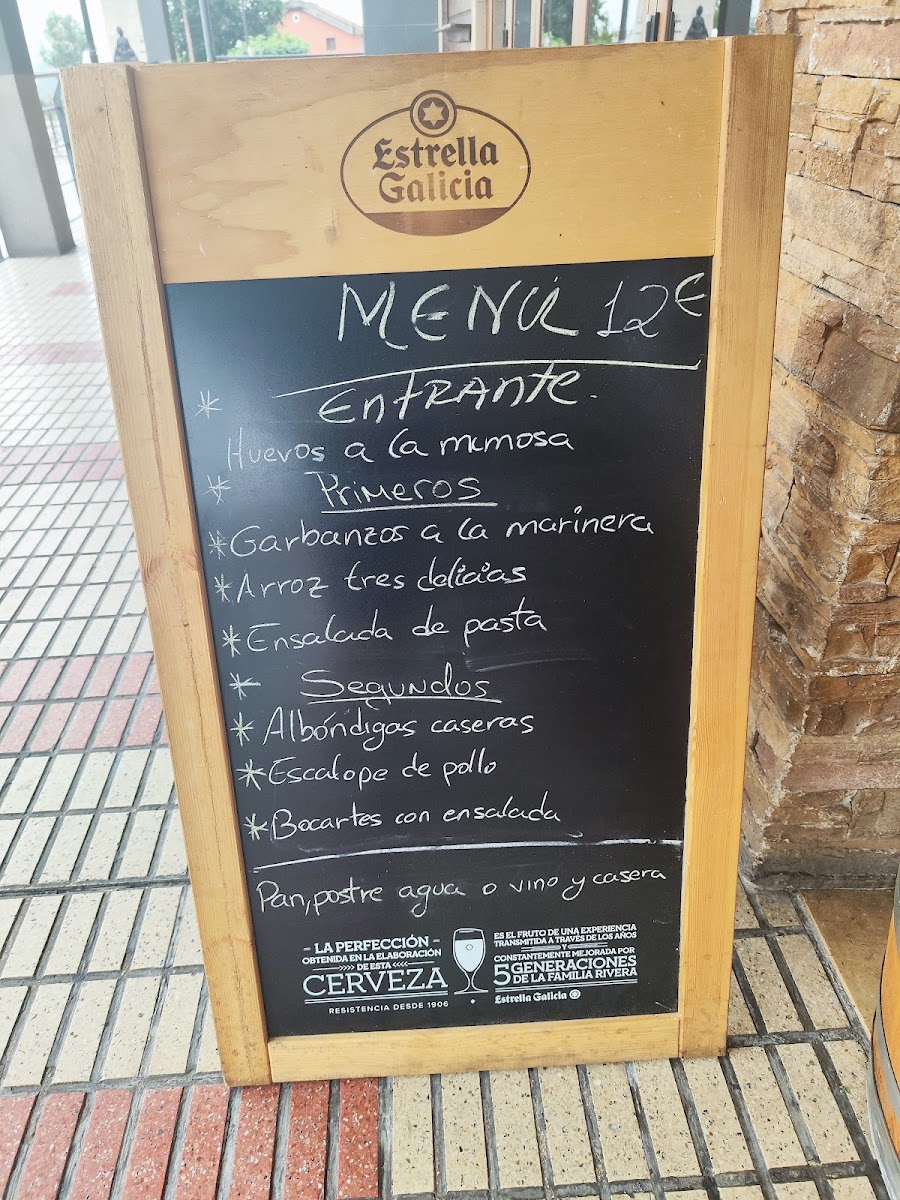 Estrella
Galicia
MENÚ 12€
* Entrante.
Huevos a la mimosa
* Primeros
* Garbanzos a la marinera
* Arroz tres delicias
* Ensalada de pasta
* Segundos
* Albóndigas caseras
* Escalope de pollo
* Bocartes con ensalada
Pan, postre agua o vino y casera
- LA PERFECCIÓN -
OBTENIDA EN LA ELABORACIÓN
DE ESTA
CERVEZA
RESISTENCIA DESDE 1906
ES EL FRUTO DE UNA EXPERIENCIA
TRANSMITIDA A TRAVÉS DE LOS AÑOS
Y
CONSTANTEMENTE MEJORADA POR
5 GENERACIONES
DE LA FAMILIA RIVERA
Estrella Galicia